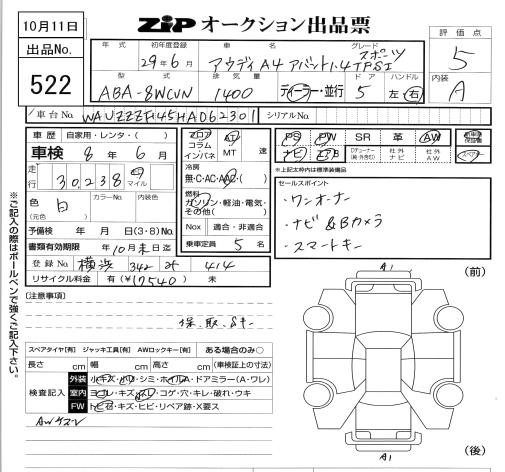 10月11日
ZIP オークション出品票
評価点
5
内装
A
出品No.
522
年式 初年度登録 車名 グレード
29年6月 アウディA4アバント1.4TFSI スポーツ
型式 排気量 ドア ハンドル
ABA-8WCVN 1400 ディーラー・並行 5 左 右
車台No. WAUZZZF45HA062301 シリアルNo.
車歴 自家用・レンタ・( )
車検 8年 6月
走行 30,238 マイル
色 白 (元色) カラーNo. 内装色
予備検 年 月 日(3・8)No.
書類有効期限 10月末日迄
登録No. 横浜 342 す 414
リサイクル料金 有(¥17540) 未
フロア コラム インパネ AT MT 速
冷房 無・C・AC・AAC・( )
燃料 ガソリン・軽油・電気・その他( )
Nox 適合・非適合
乗車定員 5名
PS PW SR 革 AW
ナビ エアB Dチューナー(純・外含む) 社外ナビ 社外AW
新車時保証書 スペアキー
*上記太枠内は標準装備品
セールスポイント
・ワンオーナー
・ナビ&Bカメラ
・スマートキー
[注意事項]
保、取、Sキー
スペアタイヤ[有] ジャッキ工具[有] AWロックキー[有] ある場合のみ○
長さ cm 幅 cm 高さ cm (車検証上の寸法)
検査記入
外装 小キズ・小ワ・シミ・ホイルA・ドアミラー(A・ワレ)
室内 ヨゴレ・キズ・スレ・コゲ・穴・キレ・破れ・ウキ
FW トビ石・キズ・ヒビ・リペア跡・X要ス
AWケスレ
※ご記入の際はボールペンで強くご記入下さい。
A1
(前)
A1
(後)